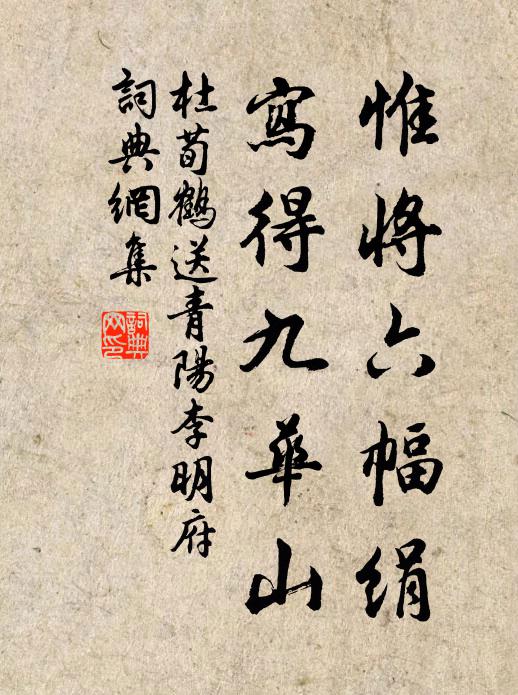 惟將六幅絹
寫得九華山
杜荀鶴送青陽李明府
詞典網集
詞典網印